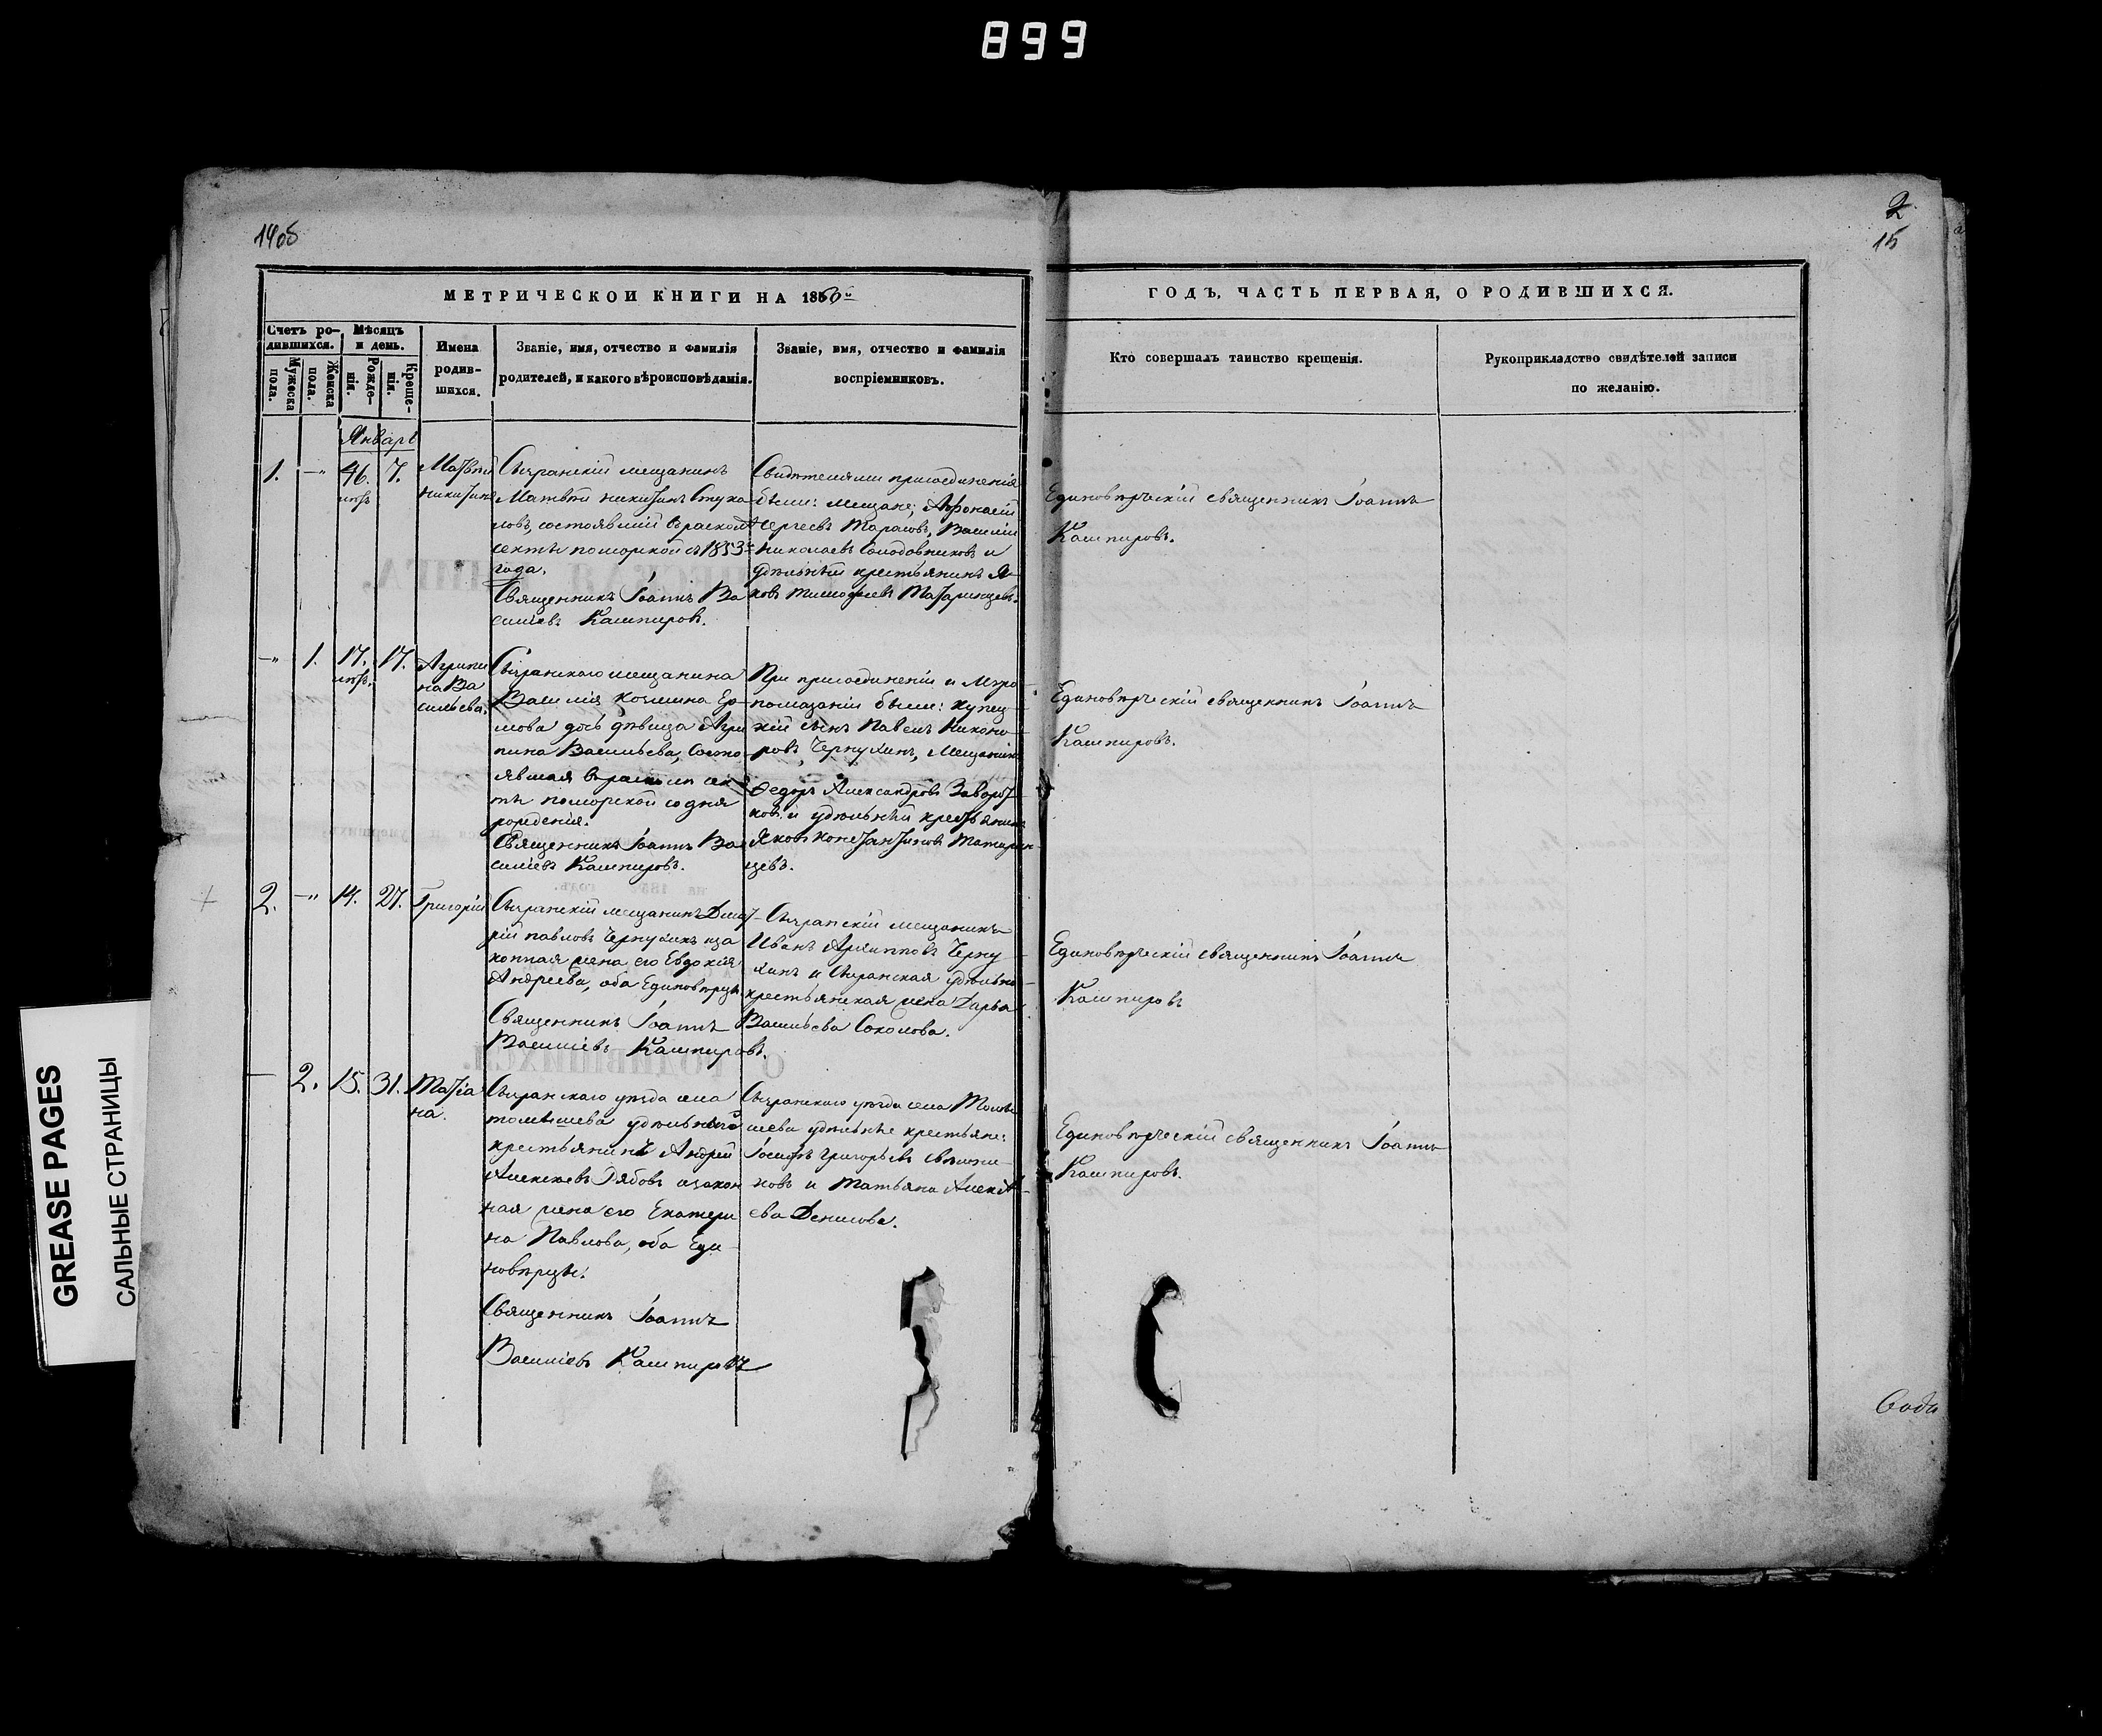 899
1405
2
15
МЕТРИЧЕСКОИ КНИГИ НА 1860й
ГОДЪ, ЧАСТЬ ПЕРВАЯ, О РОДИВШИХСЯ.
Счетъ ро-
дившихся.
Мужеска
пола.
Женска
пола.
Мѣсяцъ
и день.
Рожде-
нія.
Креще-
нія.
Имена
родив-
шихся.
Званіе, имя, отчество и фамилія
родителей, и какого вѣроисповѣданія.
Званіе, имя, отчество и фамилія
воспріемниковъ.
Кто совершалъ таинство крещенія.
Рукоприкладство свидѣтелей записи
по желанію.
Январь
1. —" 46. 7.
лѣтъ
Матвѣй
Никитинъ
Сызранскій мещанинъ
Матвѣй Никитинъ
ловъ, состоявшій въ раскол
сектѣ поморской съ 1853го
года.
Священникъ Іоаннъ Ва
силіевъ Кашпировъ.
Свидѣтелями присоединенія
были: мещане; Афонасій
Сергѣевъ Тарасовъ, Василій
Николаевъ Солодовниковъ и
удѣльный крестьянинъ Я-
ковъ Тимофѣевъ Татаринцевъ.
Единовѣрческій священникъ Іоаннъ
Кашпировъ.
—" 1. 17. 17.
лѣтъ.
Агрипи
на Ва
сильева.
Сызранскаго мещанина
Василія Козмина Ер-
мова дочь дѣвица Агри
пина Васильева, состо
явшая въ расколѣ сек
тѣ поморской со дня
рожденія.
Священникъ Іоаннъ Ва
силіевъ Кашпировъ.
При присоединеніи и Мѵро
помазаніи были: купец
кій сынъ Павелъ Никоно
ровъ Чернухинъ, Мещанинъ
Федоръ Александровъ Заворот
ковъ и удѣльный крестьянинъ
Яковъ Константиновъ Татарин-
цевъ.
Единовѣрческій священникъ Іоаннъ
Кашпировъ.
2. —" 14. 27. Григорій
Сызранскій мещанинъ Дмит
рій Павловъ Чернухинъ иза
конная жена его Евдокія
Андреева, оба Единовѣрцы
Священникъ Іоаннъ
Василіевъ Кашпировъ.
Сызранскій мещанинъ
Иванъ Архипповъ Черну
хинъ и Сызранская удѣльно
крестьянская жена Дарья
Васильева Соколова.
Единовѣрческій священникъ Іоаннъ
Кашпировъ
— 2. 15. 31.
Татіа
на.
Сызранскаго уѣзда села
Томышева удѣльный
крестьянинъ Андрей
Алексѣевъ Рябовъ изакон
ная жена его Екатери
на Павлова, оба Еди-
новѣрцы.
Священникъ Іоаннъ
Василіевъ Кашпировъ
Сызранскаго уѣзда села Томы
шева удѣльные крестьяне:
Іосифъ Григорьевъ
новъ и Татьяна Алексѣ
ева Денисова.
Единовѣрческій священникъ Іоаннъ
Кашпировъ.
GREASE PAGES
САЛЬНЫЕ СТРАНИЦЫ